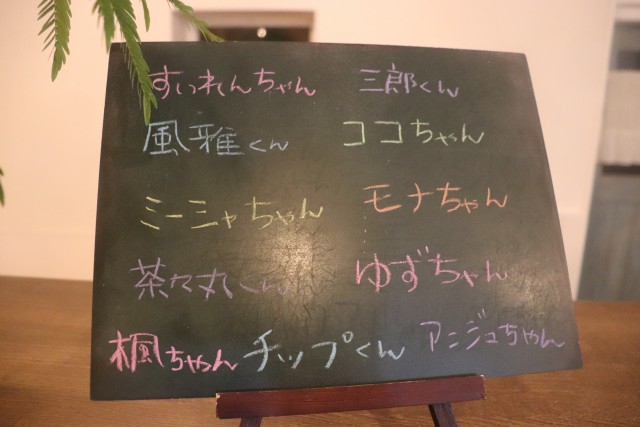 すいれんちゃん 三郎くん
風雅くん ココちゃん
ミーシャちゃん モナちゃん
茶々丸くん ゆずちゃん
楓ちゃん チップくん アンジュちゃん